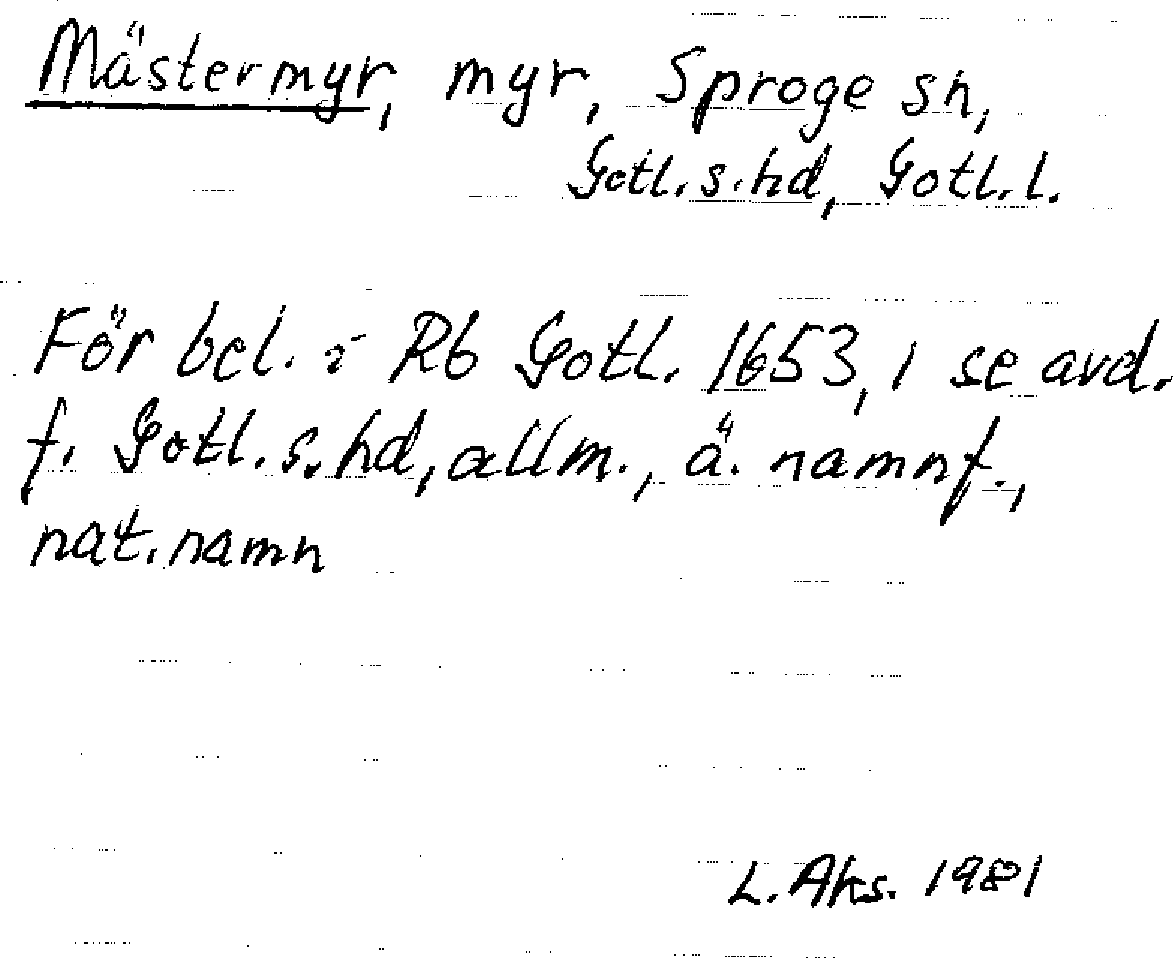 Mästermyr, myr, Sproge sn,
Gotl.s.hd, Gotl.l.
För bel. i Rb Gotl. 1653, 1 se avd.
f. Gotl.s.hd, allm., ä. namnf.,
nat.namn
L. Aks. 1981